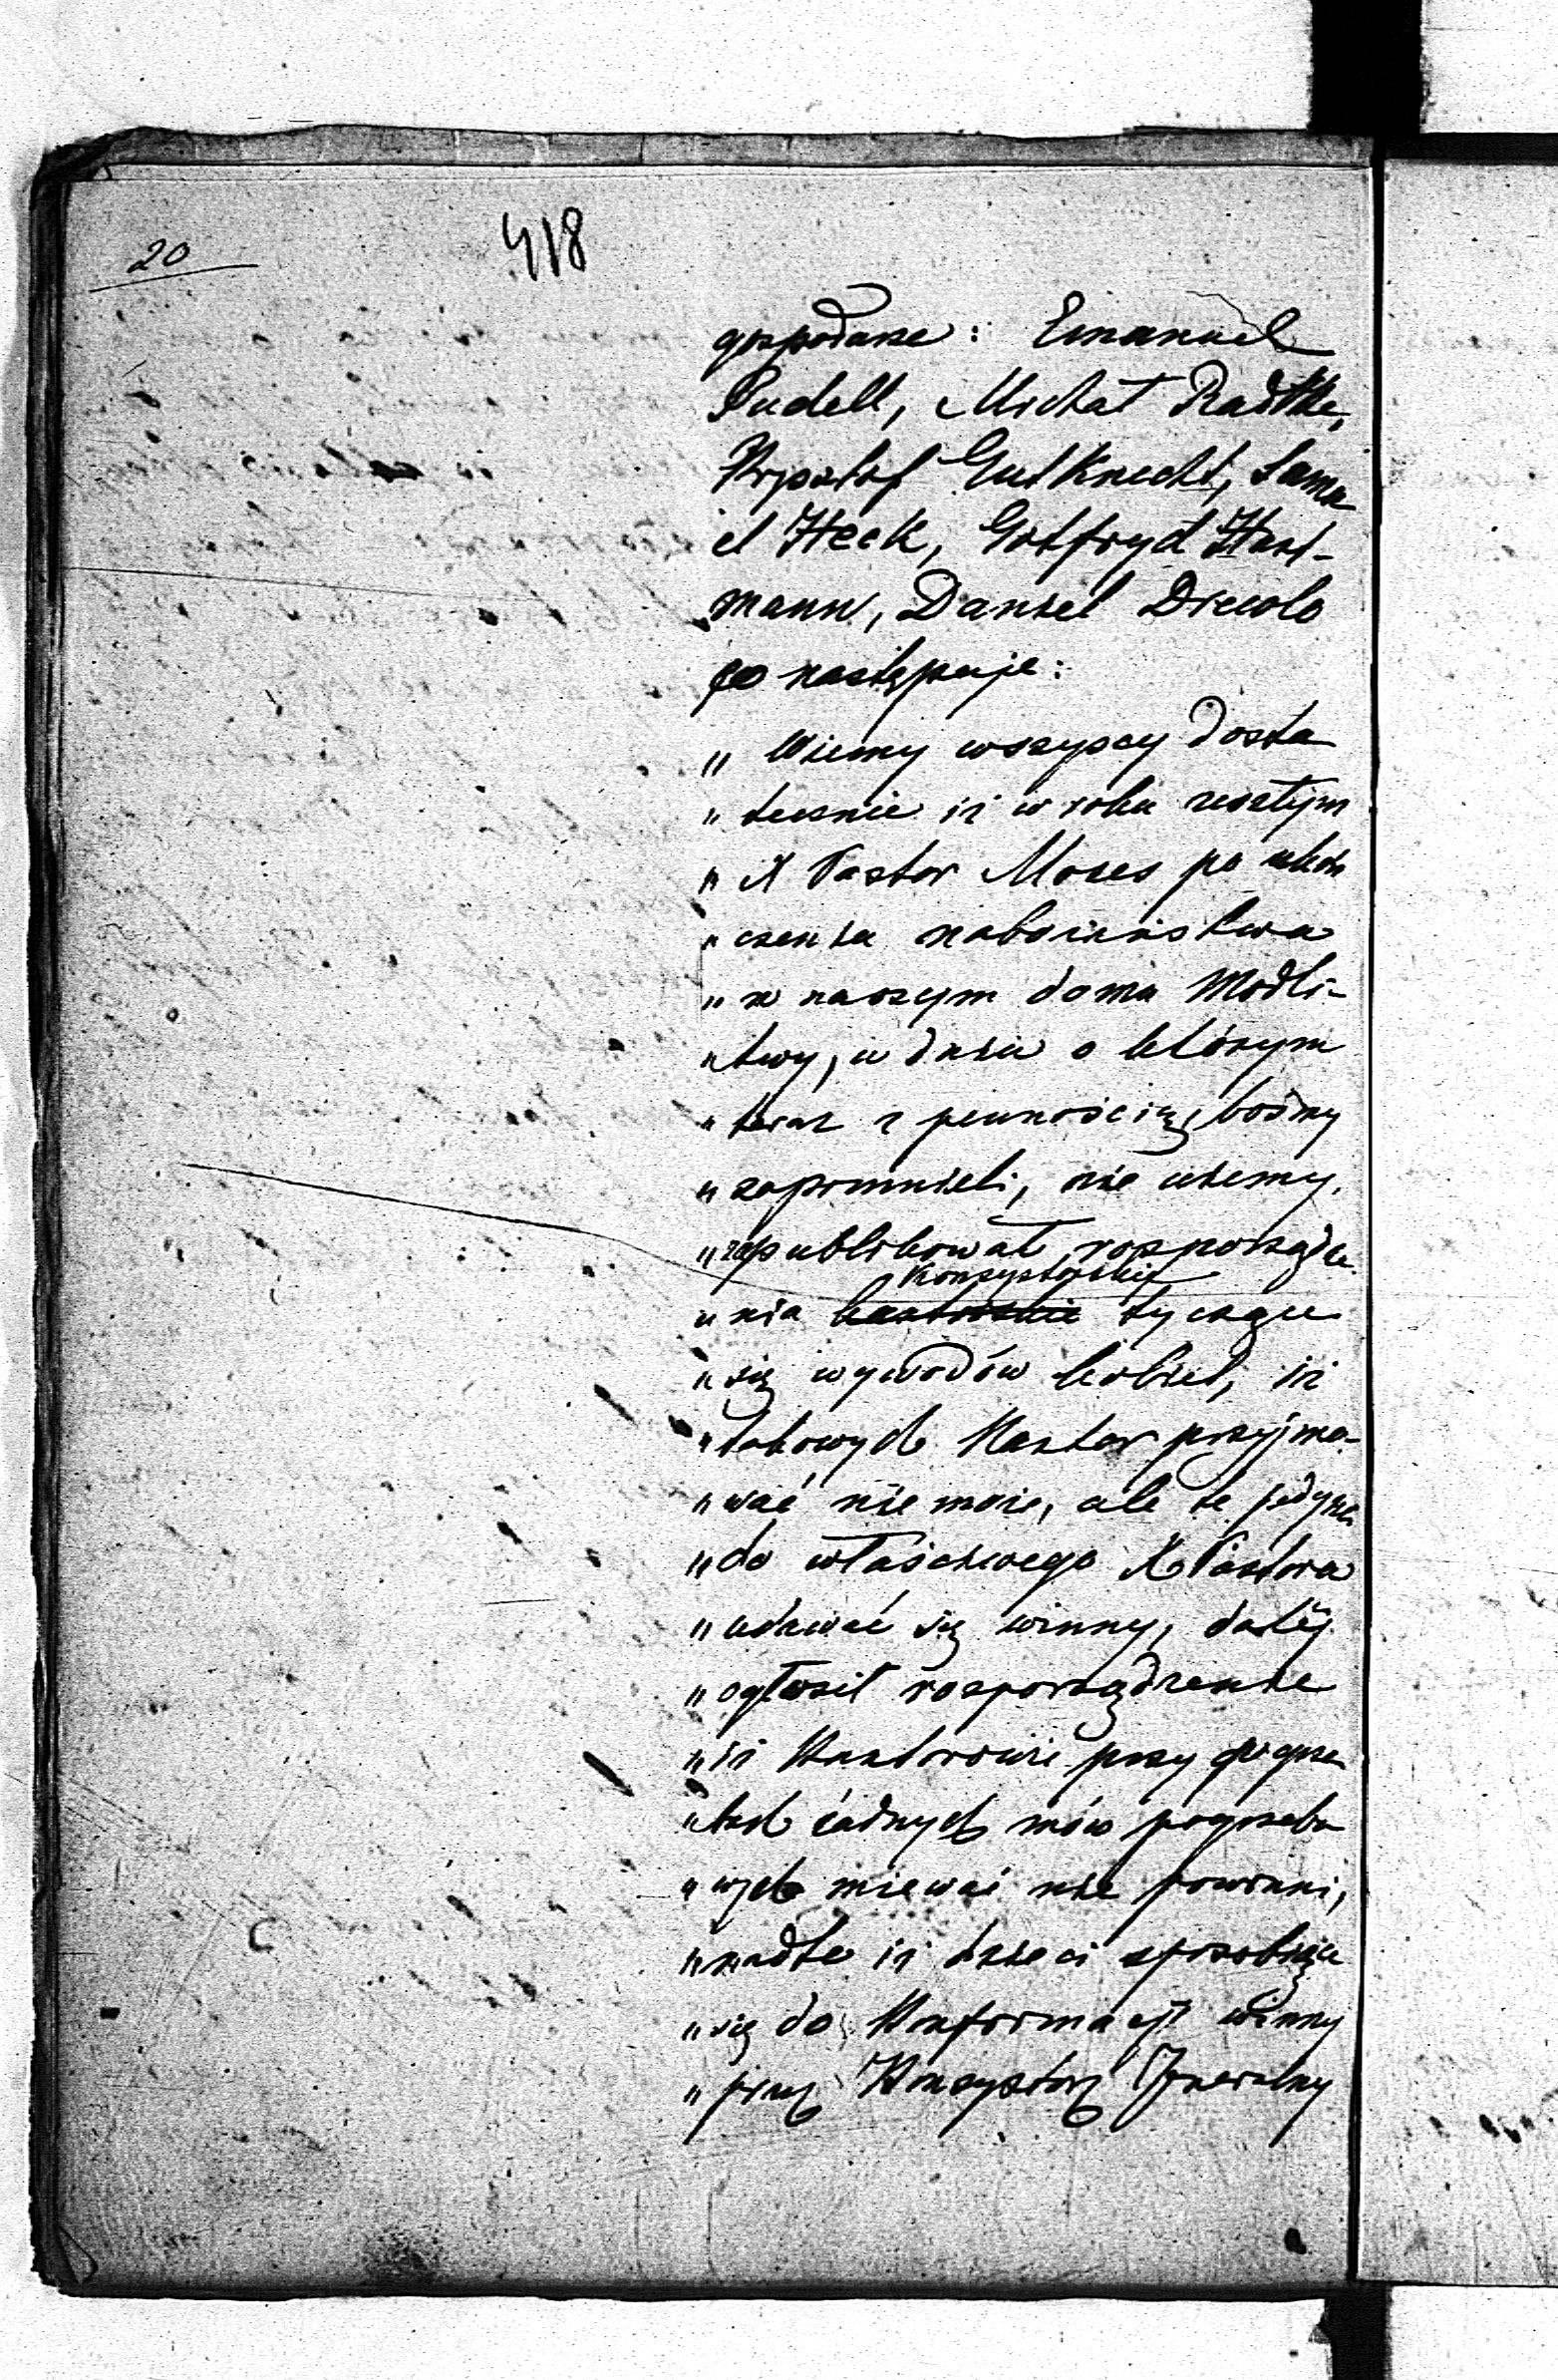 20
418
gospodarze: Emanuel
Pudell, Michał Radtke,
Krysztof Gutknecht, Samu
el Heck, Gotfryd Hart-
mann, Daniel Drewlo
co następuje:
„ Wiemy wszyscy dosta
„ tecznie iż w roku zeszłym
„ X Pastor Moses po ukoń
„ czeniu nabożeństwa
„ w naszym domu Modli-
„ twy, w dniu o którym
„ teraz z pewnością, bośmy
„ zapomnieli, nie wiemy,
„ zapublikował rozporządze
Konsystorskie
„ nia tyczące
„ się wywodów kobiet, iż
„ takowych Kantor przyjmo-
„ wać nie może, ale te jedynie
„ do właściwego X Pastora
„ udawać się winny, daléj
„ ogłosił rozporządzenie
„ iż Kantorowie przy pogrze
„ bach żadnych mów pogrzebo
„ wych miewać nie powinni,
„ nadto iż dzieci sposobiące
„ się do Konfirmacyi winny
„ przez Konsystorz Jeneralny